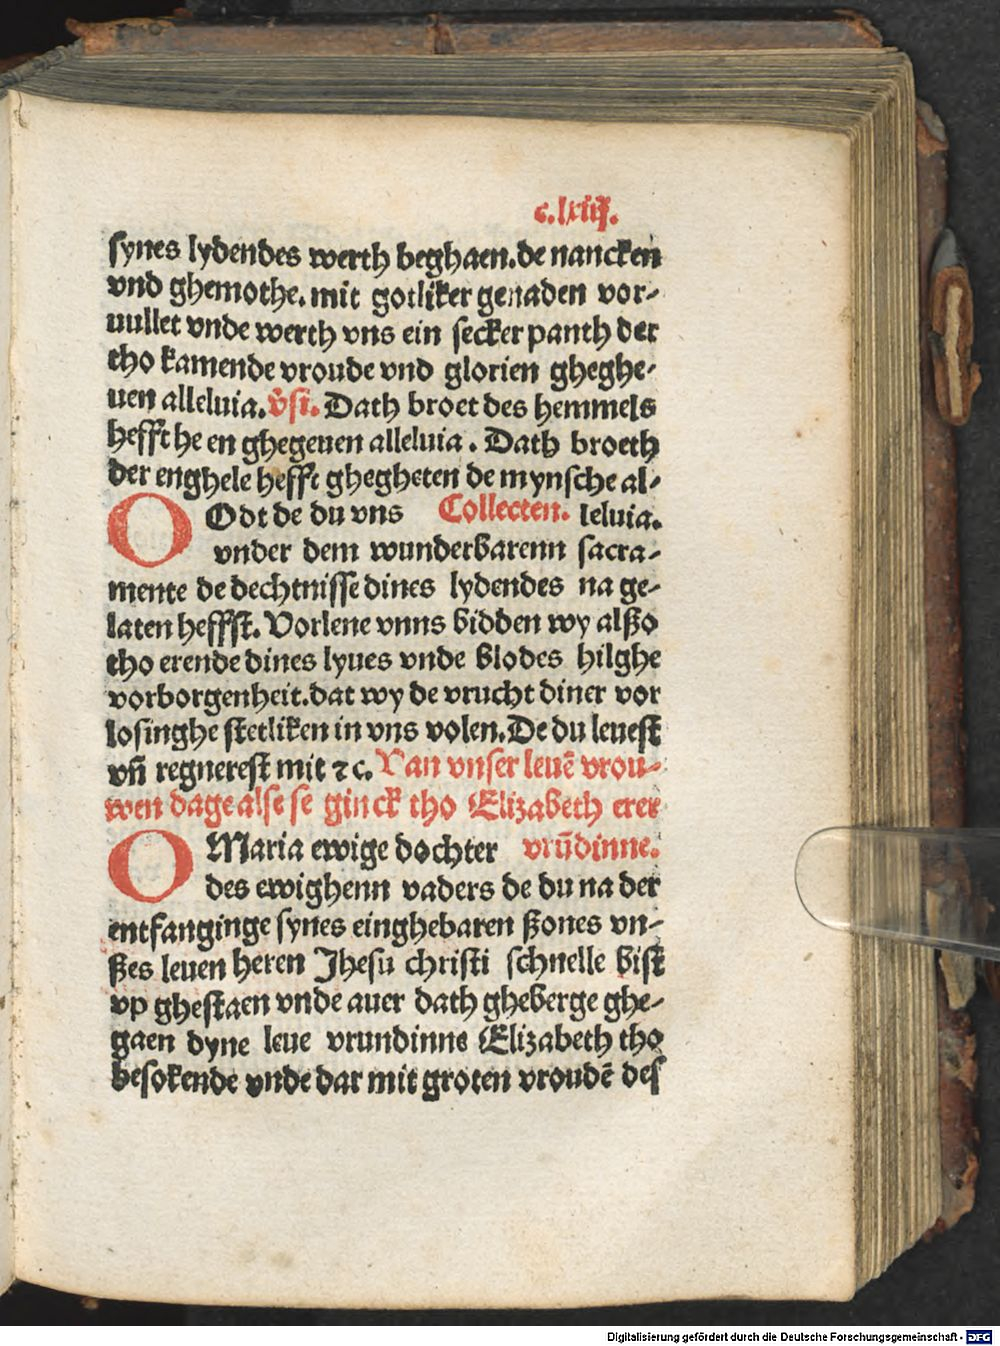 c.lxiiij.
synes lydendes werth beghaen. de nancken
vnd ghemothe. mit gotliker genaden vor-
uullet vnde werth vns ein secker panth der
tho kamende vroude vnd glorien gheghe-
uen alleluia. v̾si. Dath broet des hemmels
hefft he en ghegeuen alleluia. Dath broeth
der enghele hefft ghegheten de mynsche al-
O Odt de du vns Collecten. leluia.
vnder dem wunderbarenn sacra-
mente de dechtnisse dines lydendes na ge-
laten heffst. Vorlene vnns bidden wy alßo
tho erende dines lyues vnde blodes hilghe
vorborgenheit. dat wy de vrucht diner vor
losinghe stetliken in vns volen. De du leuest
vn̄ regnerest mit ⁊c. Van vnser leuē vrou-
wen dage alse se ginck tho Elizabeth erer
O Maria ewige dochter vrūdinne.
des ewighenn vaders de du na der
entfanginge synes einghebaren ßones vn-
ßes leuen heren Jhesu christi schnelle bist
vp ghestaen vnde auer dath gheberge ghe-
gaen dyne leue vrundinne Elizabeth tho
besokende vnde dar mit groten vroudē des
Digitalisierung gefördert durch die Deutsche Forschungsgemeinschaft - DFG